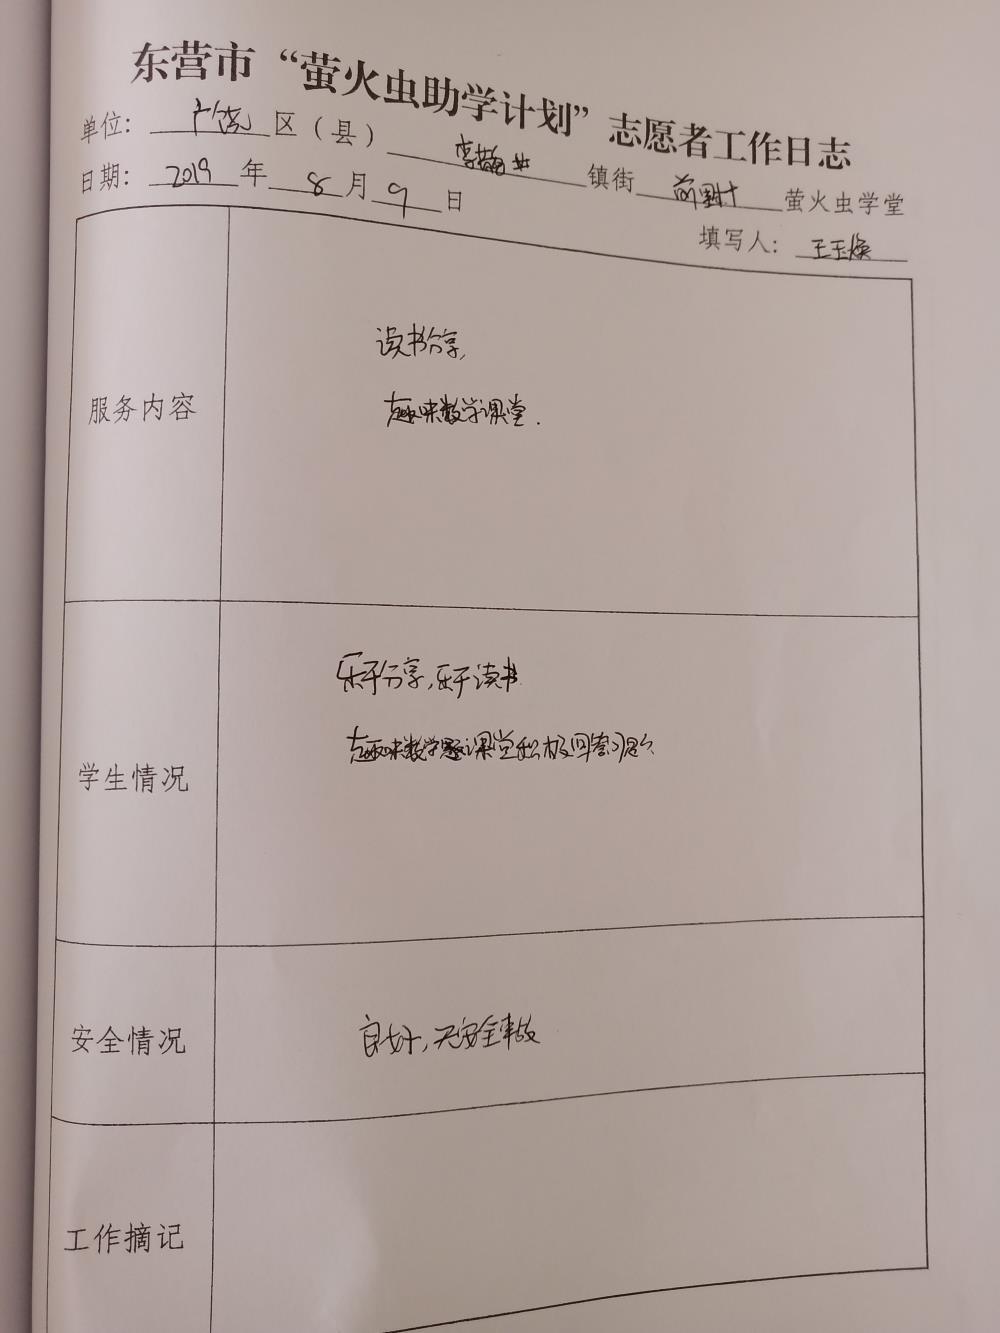 东营市“萤火虫助学计划”志愿者工作日志
单位: 广饶区(县)李鹊镇街萤火虫学堂
日期: 2019年8月9日
填写人: 王玉焕
服务内容
读书分享,
趣味数学课堂.
学生情况
乐于分享,乐于读书
趣味数学课堂积极回答问题
安全情况
良好,无安全事故
工作摘记